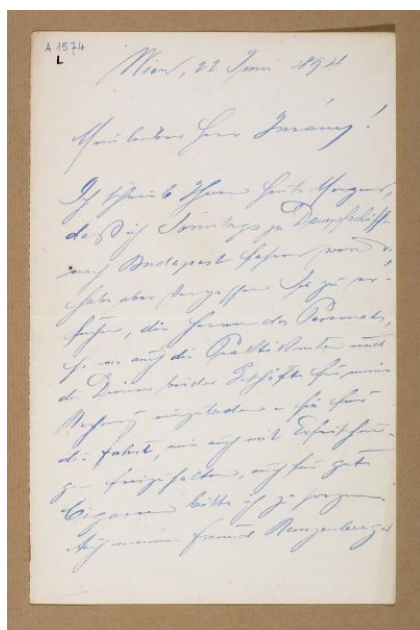 A 1574
L
Wien, 22 Juni 1891
Mein lieber Herr
Ich schrieb Ihnen heute Morgens,
daß ich Sonntags zu Dampfschiffe
nach Budapest fahren
habe aber vergessen Sie zu er-
suchen, die Herren des Personals,
so wie auch die Praktikanten und
die Diener beider für meine
Rechnung einzuladen u sie für
die Fahrt, wie auch mit Erfrischun-
gen freizuhalten, auch für gute
Cigarren bitte ich zu sorgen
Auch meinen Freund